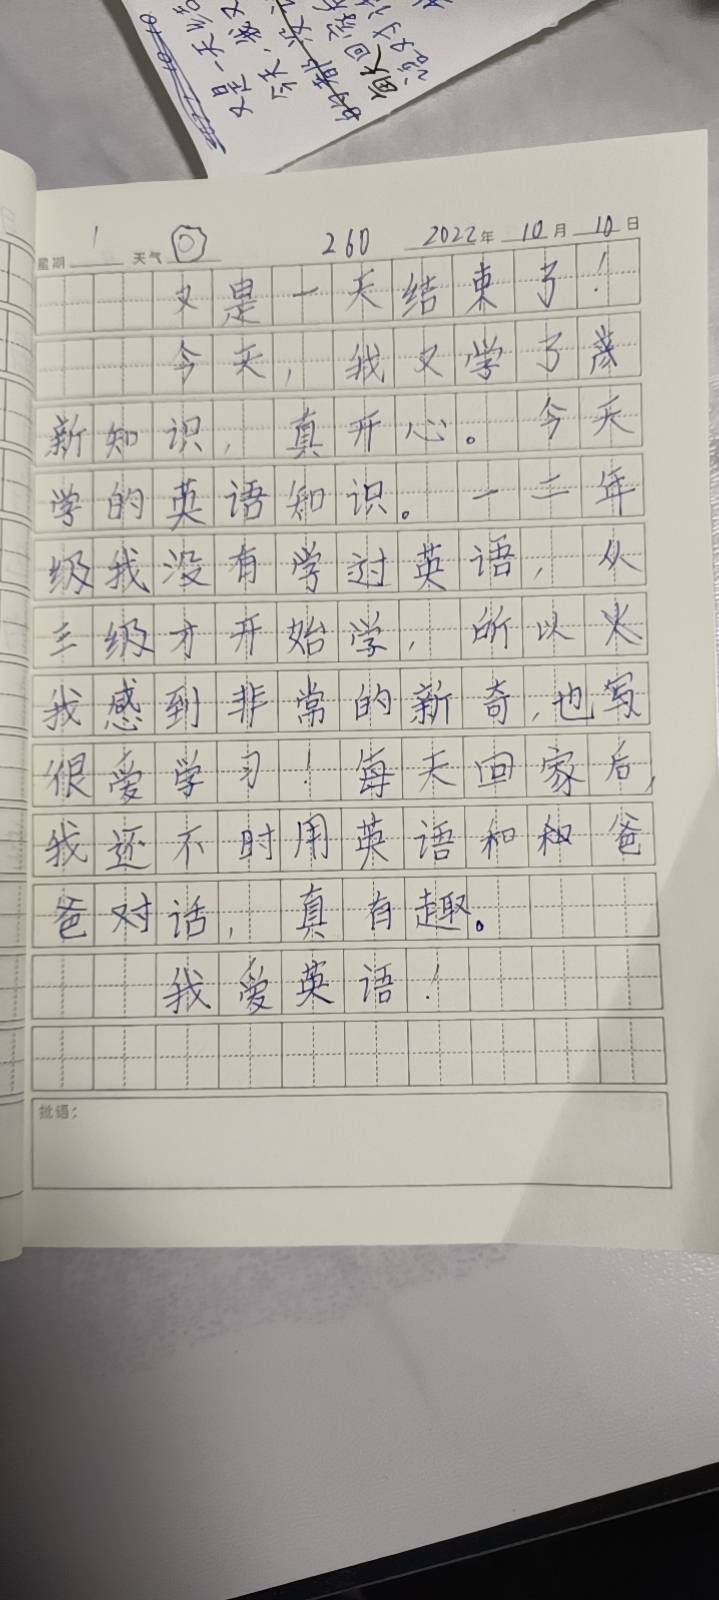 又是一天
今天,
回家
星期 1 天气 260 2022年 10月 10日
又是一天结束了!
今天,我又学了
新知识,真开心。今天
学的英语知识。一二年
级我没有学过英语,从
三级才开始学,所以
我感到非常的新奇,也写
很爱学习!每天回家后,
我还不时用英语和和爸
爸对话,真有趣。
我爱英语!
批语: